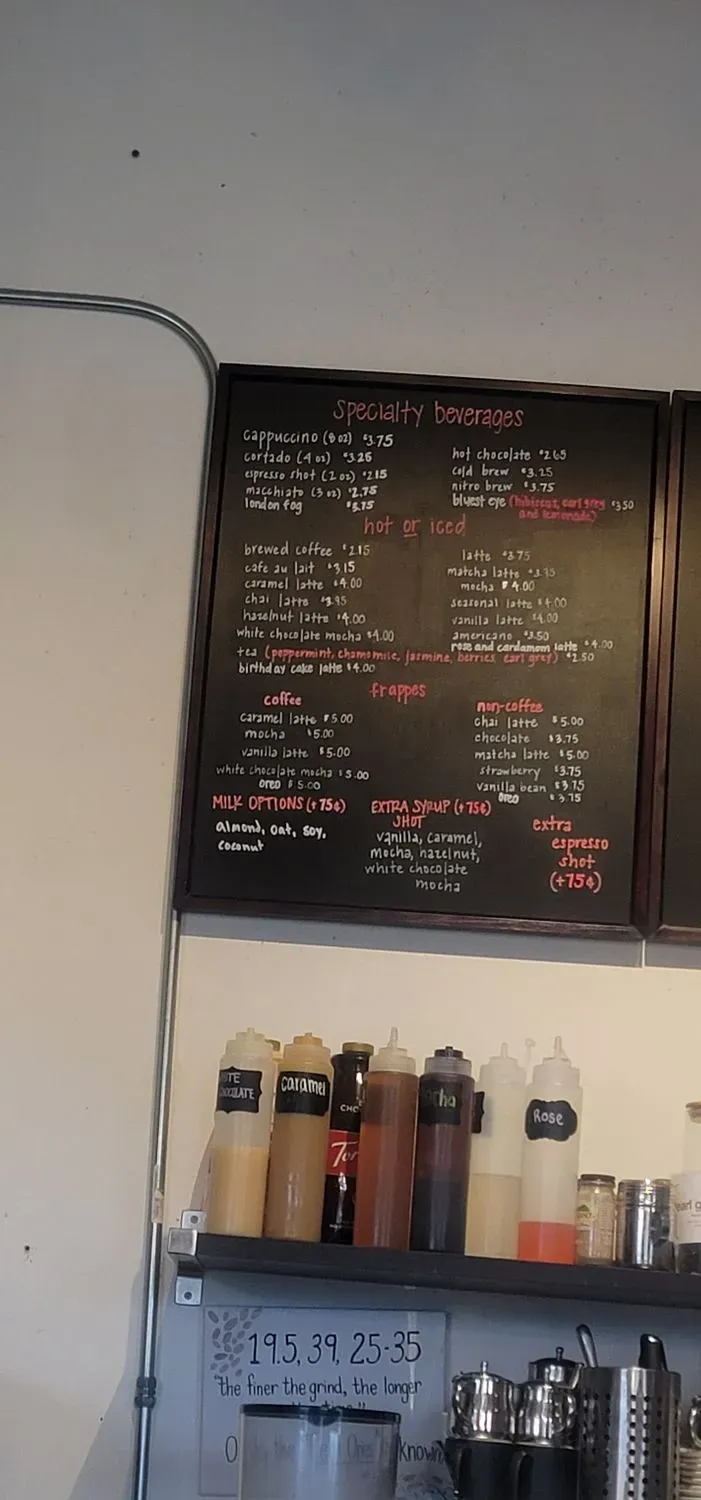 specialty beverages
cappuccino (8 oz) $3.75
cortado (4 oz) $3.25
espresso shot (2 oz) $2.15
macchiato (3 oz) $2.75
london fog $3.75
hot chocolate $2.65
cold brew $3.25
nitro brew $3.75
bluest eye (hibiscus, earl grey $3.50
and lemonade)
hot or iced
brewed coffee $2.15
cafe au lait $3.15
caramel latte $4.00
chai latte $3.95
hazelnut latte $4.00
white chocolate mocha $4.00
latte $3.75
matcha latte $3.95
mocha $4.00
seasonal latte $4.00
vanilla latte $4.00
americano $3.50
rose and cardamom latte $4.00
tea (peppermint, chamomile, jasmine, berries, earl grey) $2.50
birthday cake latte $4.00
frappes
coffee
caramel latte $5.00
mocha $5.00
vanilla latte $5.00
white chocolate mocha $5.00
oreo $5.00
non-coffee
chai latte $5.00
chocolate $3.75
matcha latte $5.00
strawberry $3.75
vanilla bean $3.75
oreo $3.75
MILK OPTIONS (+75¢)
almond, oat, soy,
coconut
EXTRA SYRUP (+75¢)
SHOT
vanilla, caramel,
mocha, hazelnut,
white chocolate
mocha
extra
espresso
shot
(+75¢)
caramel
Rose
19.5, 39, 25-35
"the finer the grind, the longer